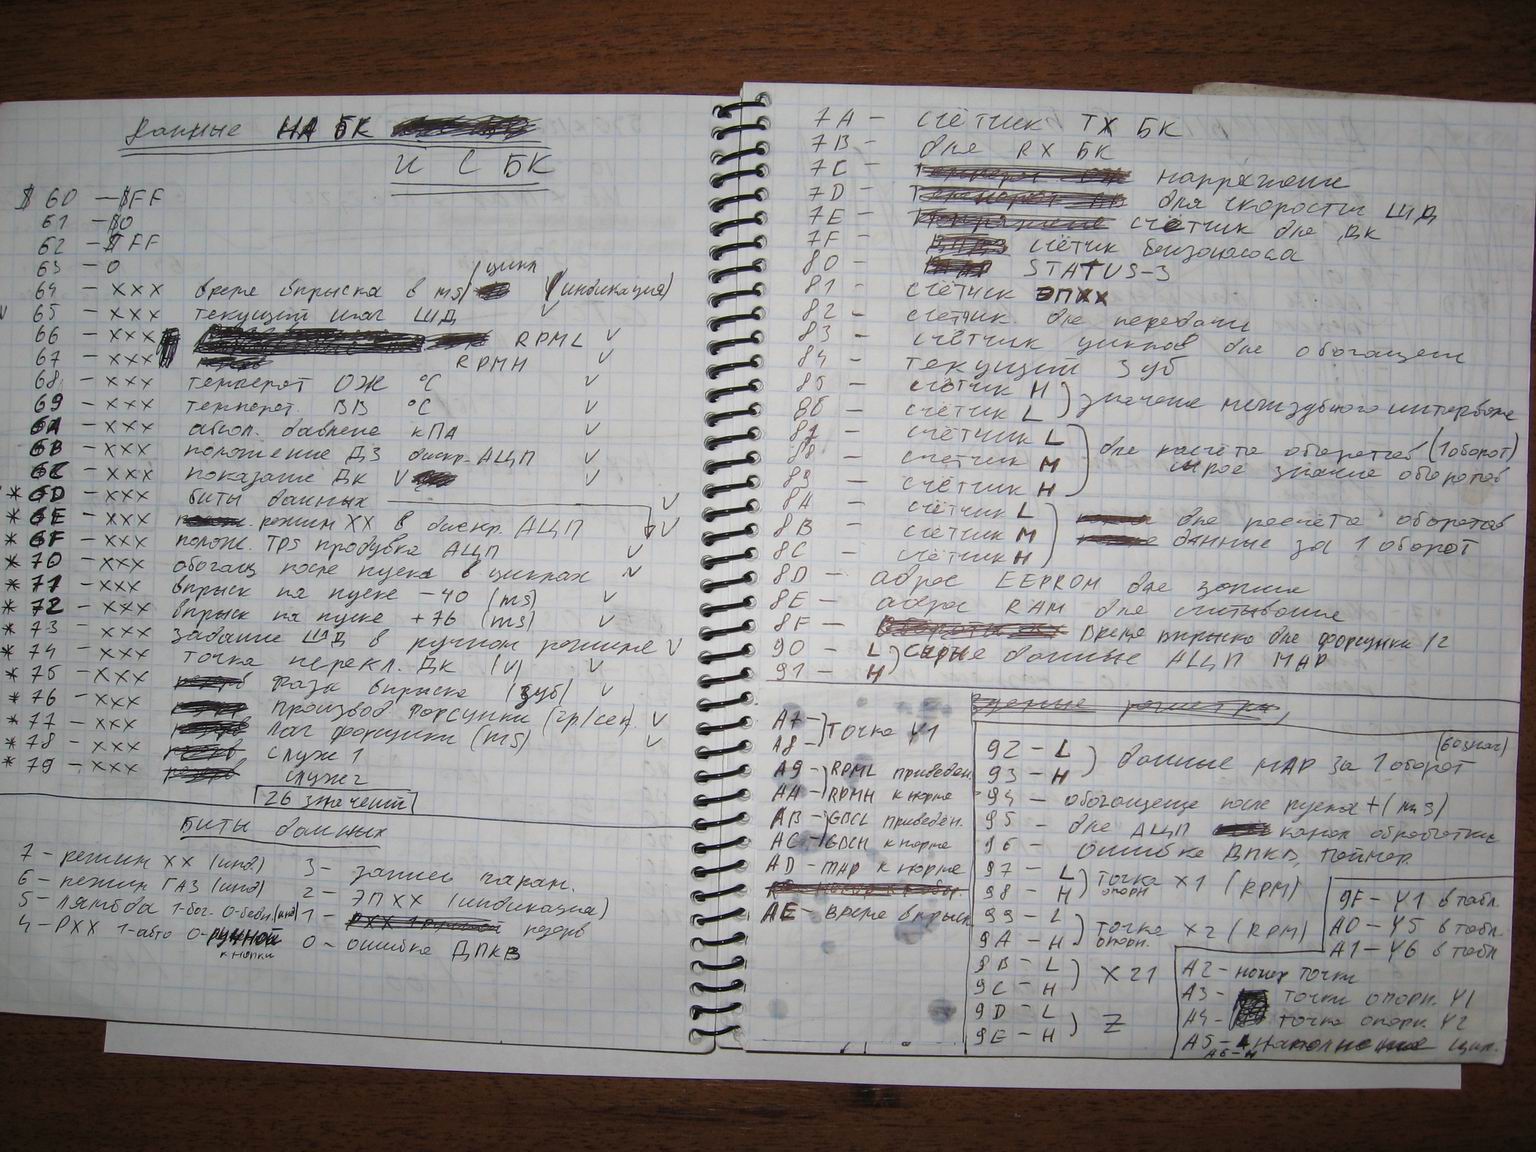 Данные НА БК
И С БК
$ 60 – $FF
61 – $0
62 – $FF
63 – 0
64 – xxx время впрыска в ms/цикл (индикация)
V 65 – xxx текущий шаг ШД V
66 – xxx RPML V
67 – xxx RPMH V
68 – xxx температ ОЖ °C V
69 – xxx температ. ВВ °C V
6A – xxx абсол. давление кПА V
6B – xxx положение ДЗ дискр. АЦП V
6C – xxx показание ДК V V
* 6D – xxx биты данных V
* 6E – xxx режим XX в дискр. АЦП V
* 6F – xxx полож. TPS продувка АЦП V
* 70 – xxx обогащ после пуска в циклах V
* 71 – xxx впрыск на пуске –40 (ms) V
* 72 – xxx впрыск на пуске +76 (ms) V
* 73 – xxx задание ШД в ручном режиме V
* 74 – xxx точка перекл. ДК (V) V
* 75 – xxx фаза впрыска (зуб) V
* 76 – xxx производ форсунки (гр/сек) V
* 77 – xxx лаг форсунки (ms) V
* 78 – xxx служ 1
* 79 – xxx служ 2
26 значений
Биты данных
7 – режим XX (инд)
6 – режим ГАЗ (инд)
5 – лямбда 1-бог. 0-бедн. (инд)
4 – РХХ 1-авто 0-ручной
кнопки
3 – запись парам.
2 – ЭПХХ (индикация)
1 – резерв
0 – ошибка ДПКВ
7A – счётчик TX БК
7B – для RX БК
7C – напряжение
7D – для скорости ШД
7E – счётчик для ДК
7F – счётчик бензонасоса
80 – STATUS-3
81 – счётчик ЭПХХ
82 – счётчик для передачи
83 – счётчик циклов для обогащен
84 – текущий зуб
85 – счётчик H
86 – счётчик L ) значение межзубного интервала
87 – счётчик L
88 – счётчик M ) для расчёта оборотов (1 оборот) сырое знание оборотов
89 – счётчик H
8A – счётчик L
8B – счётчик M ) для расчёта оборотов данные за 1 оборот
8C – счётчик H
8D – адрес EEPROM для записи
8E – адрес RAM для считывания
8F – время впрыска для форсунки 1/2
90 – L ) сырые данные АЦП MAP
91 – H
A7 – ) точка Y1
A8 –
A9 – ) RPML приведен.
AA – RPMH к норме
AB – ) GBCL приведен.
AC – GBCH к норме
AD – MAP к норме
AE – время впрыск
92 – L ) данные MAP за 1 оборот
93 – H
94 – обогащение после пуска + (ms)
95 – для АЦП канал обработки
96 – ошибка ДПКВ, таймер.
97 – L ) точка X1 (RPM)
98 – H опорн
99 – L ) точка X2 (RPM)
9A – H опорн.
9B – L ) X21
9C – H
9D – L ) Z
9E – H
9F – Y1 в табл.
A0 – Y5 в табл.
A1 – Y6 в табл
A2 – номер точки
A3 – точки опорн. Y1
A4 – точка опорн. Y2
A5 – L наполнение цил.
A6 – H